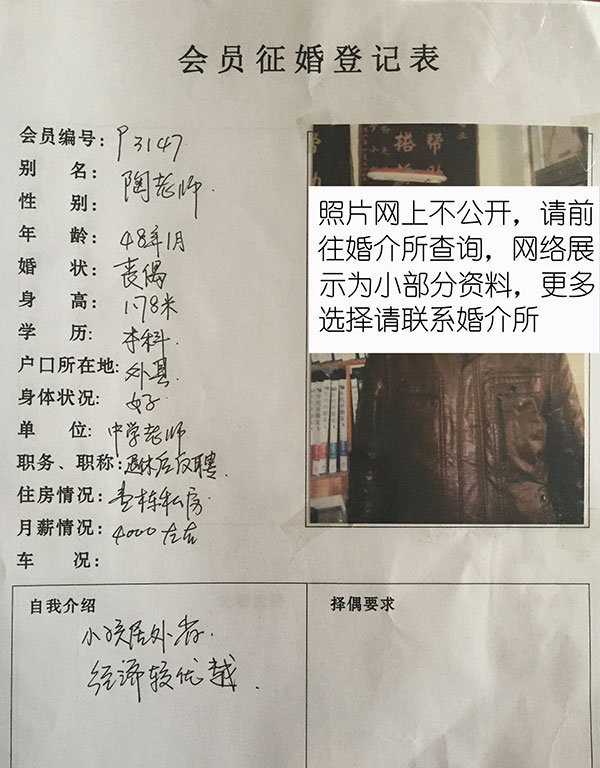 会员征婚登记表
会员编号：P3147
别 名：陶老师
性 别：
年 龄：48年1月
婚 状：丧偶
身 高：1.78米
学 历：本科
户口所在地：外县
身体状况：好
单 位：中学老师
职务、职称：退休后反聘
住房情况：壹栋私房
月薪情况：4000左右
车 况：
照片网上不公开，请前
往婚介所查询，网络展
示为小部分资料，更多
选择请联系婚介所
自我介绍
小孩居外省.
经济较优越.
择偶要求